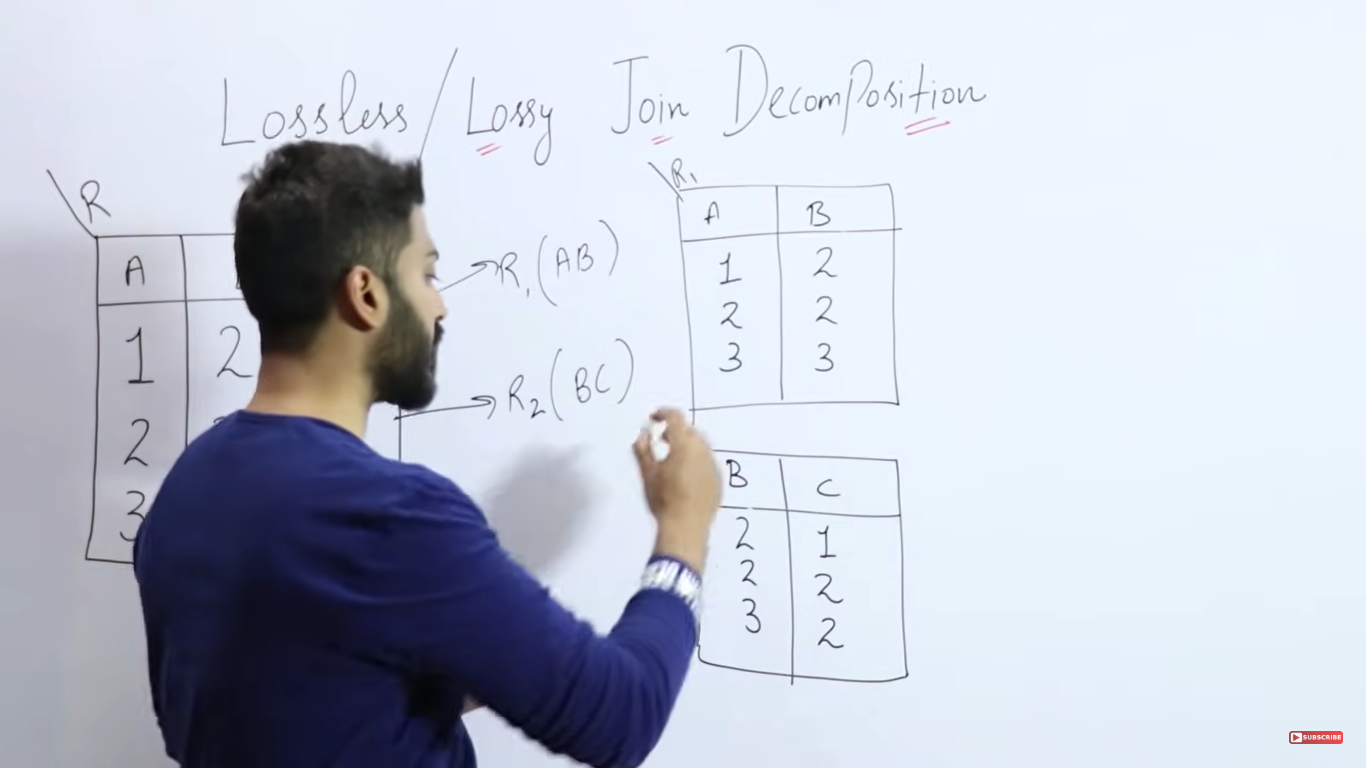 Lossless/Lossy Join Decomposition
R
A
1 2
2
3
R₁(AB)
R₂(BC)
R₁
A B
1 2
2 2
3 3
B C
2 1
2 2
3 2
SUBSCRIBE